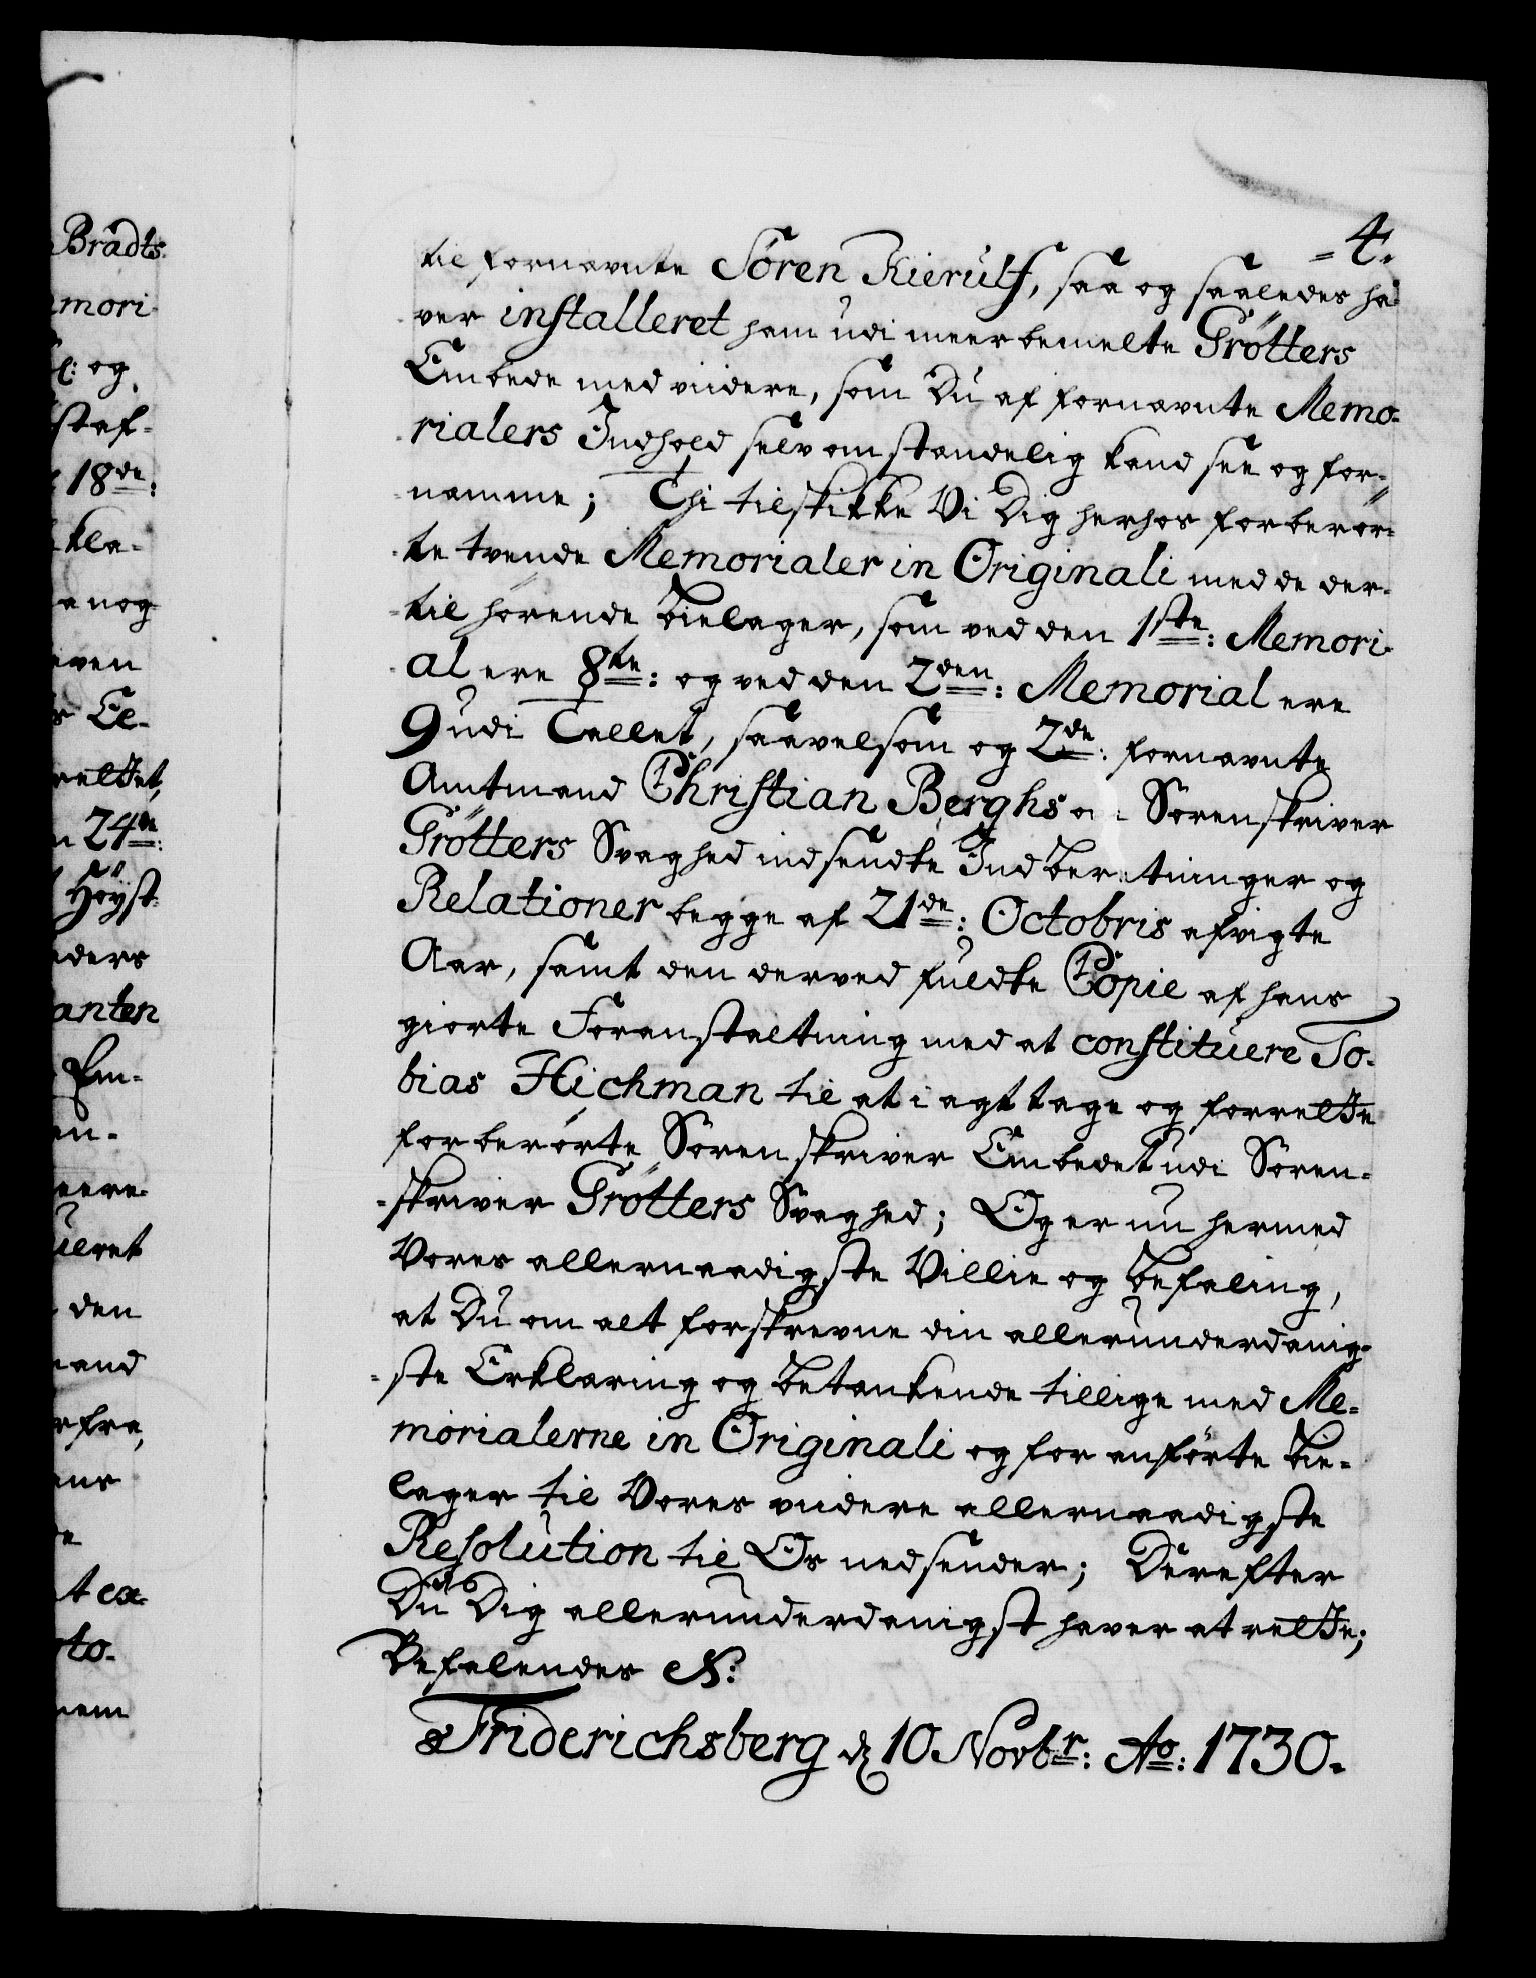 Bradts
mori-
og
staf-
18de:
kla-
a nog
even
El-
reltet,
24de:
Höyst-
nders
anten
Em-
en-
meere-
ueret
den
mand
rfra,
ens
de
t ex-
to-
nem
=4.
til fornævnte Sören Kierulf, saa og saaledes ha-
ver installeret ham udi meerbemelte Grötters
Embede med viidere, som Du af fornævnte Memo-
rialers Indhold selv omstændelig kand see og for-
nemme; Thi tilskikke Vi Dig herhos forberör-
te tvende Memorialer in Originali med de der-
til hörende Bielager, som ved den 1ste: Memori-
al ere 8te: og ved den 2den: Memorial ere
9 udi Tallet, saavelsom og 2de: fornævnte
Amtmand Christian Berghs o Sorenskriver
Grötters Svaghed indsendte Indber tninger og
Relationer begge af 21de: Octobris afvigte
Aar, samt den derved fuldte Copie af hans
giorte Foranstaltning med at constituere To-
bias Hichman til at i agt tage og forrette
forberörte Sorenskriver Embedet udi Soren-
-skriver Grötters Svaghed; Og er nu hermed
Vores allernaadigste Villie og Befaling,
at Du om alt forskrevne din allerunderdanig-
-ste Erklæring og Betænkende tillige med Me-
morialerne in Originali og for anförte Bie-
lager til Vores viidere allernaadigste
Resolution til Os nedsender; Derefter
Du Dig allerunderdanigst haver at rette;
Befalendes N:
Friderichsberg d 10 Novbr: Ao: 1730.